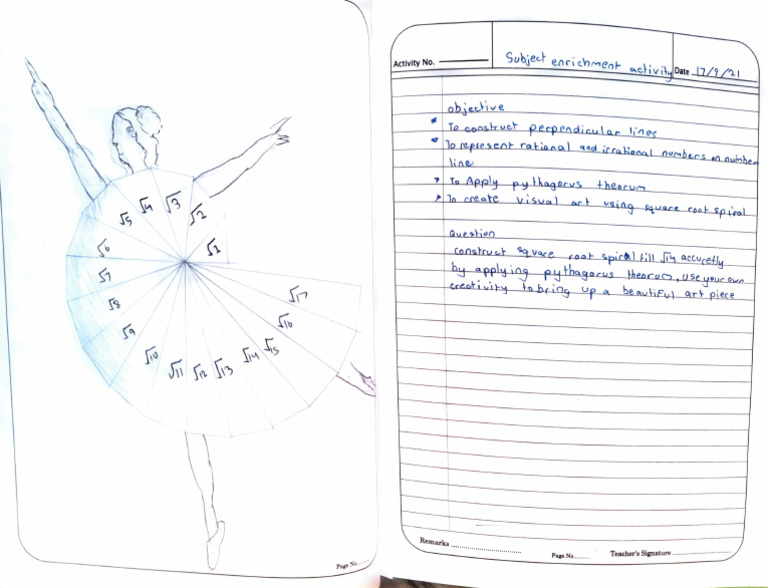 √5 √4 √3 √2
√1
√6
√7
√8
√9
√10
√11
√12
√13
√14
√15
√16
√17
Page No.
Activity No.
Subject enrichment activity
Date 17/9/21
objective
To construct perpendicular lines
To represent rational and irrational numbers on number
line
To Apply pythagorus theorum
To create visual art using square root spiral
Question
construct square root spiral till √14 accuretly
by applying pythagorus theorum, use your own
creativity to bring up a beautiful art piece
Remarks
Page No.
Teacher's Signature